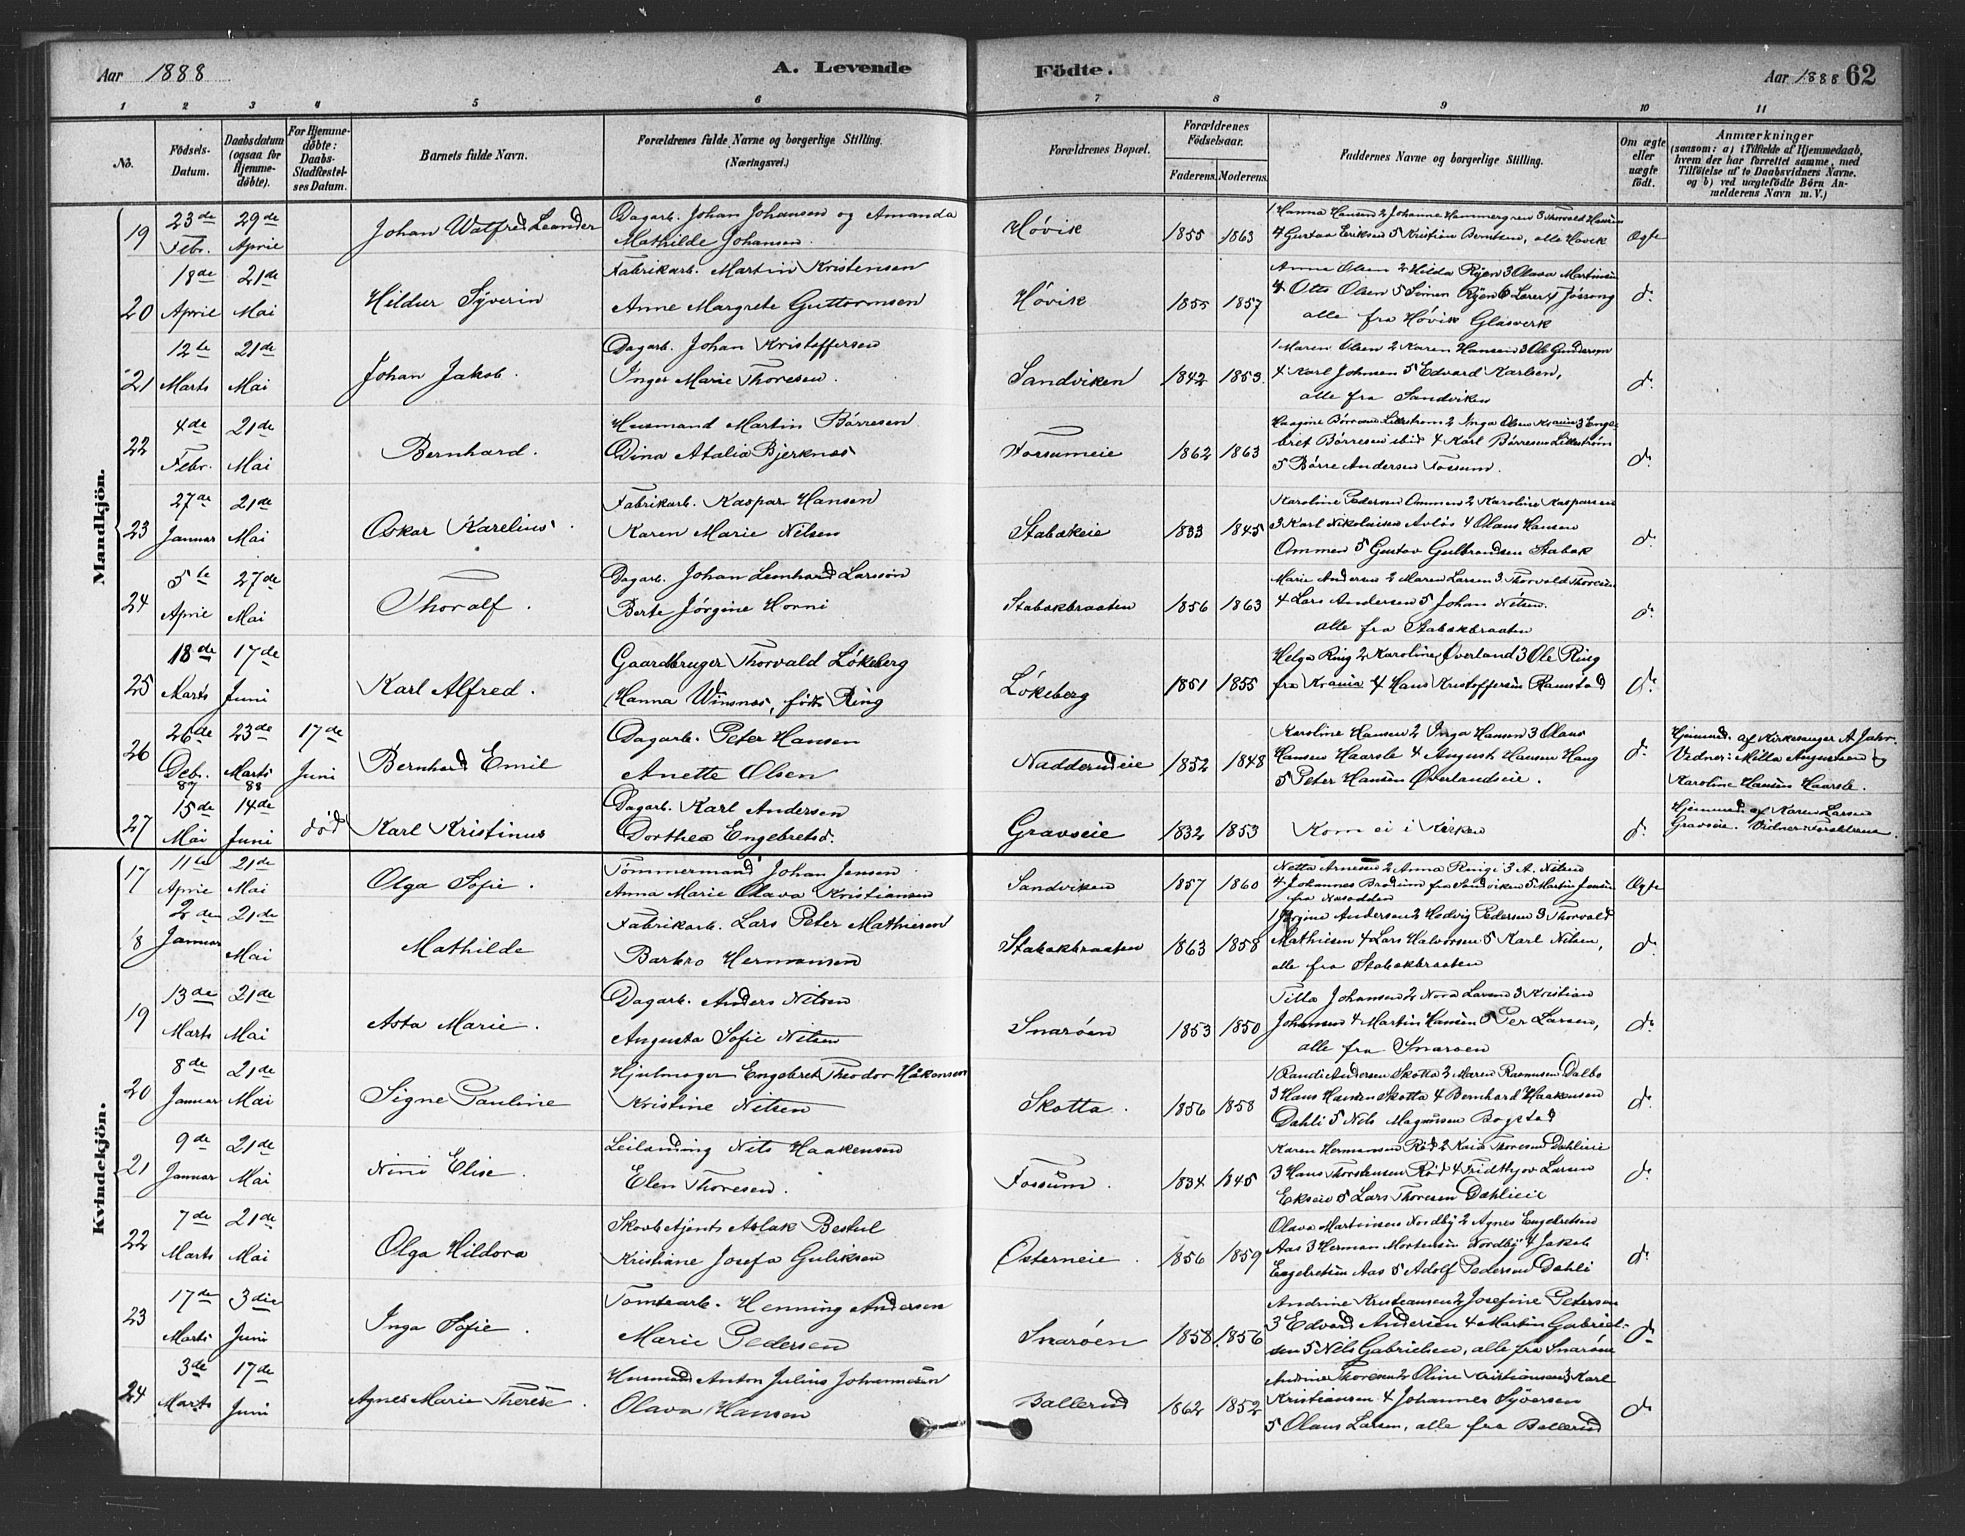 Aar 1888
A. Levende
Födte.
Aar 1888 62
1 2 3 4 5 6 7 8 9 10 11
No.
Födsels-Datum.
Daabsdatum (ogsaa for Hjemmedöbte).
For Hjemmedöbte: Daabs-Stadfæstelses Datum.
Barnets fulde Navn.
Forældrenes fulde Navne og borgerlige Stilling. (Næringsvei.)
Forældrenes Bopæl.
Forældrenes Födselsaar.
Faderens. Moderens.
Faddernes Navne og borgerlige Stilling.
Om ægte eller uægte födt.
Anmærkninger
(saasom: a) i Tilfælde af Hjemmedaab, hvem der har forrettet samme, med Tilföielse af to Daabsvidners Navne. og b) ved uægtefödte Börn Anmelderens Navn m. V.)
Mandkjön.
19 23de Febr. 29de April Johan Watfred Leander Dagarb. Johan Johansen og Amanda Mathilde Johansen. Høvik 1855 1863 1 Hanna Hansen 2 Johanne Hammergren 3 Thorvald Hansen 4 Gustav Eriksen 5 Kristian Berntsen, alle Høvik Ægte
20 18de April 21de Mai Hildur Syverin Fabrikarb. Martin Kristensen Anne Margrete Guttormsen Høvik 1855 1857 Anne Olsen 2 Hilda Ryen 3 Olava Martinsen 4 Otto Olsen 5 Simen Ryen 6 Lærer Jossong alle fra Høvik Glasverk do
21 12te Marts 21de Mai Johan Jakob. Dagarb. Johan Kristoffersen Inger Marie Thoresen. Sandviken 1842 1853. 1 Maren Olsen 2 Karen Hansen 3 Ole Gundersen 4 Karl Johnsen 5 Edvard Karlsen, alle fra Sandviken do
22 4de Febr. 21de Mai Bernhard. Husmand Martin Børresen Dina Atalia Bjerknæs Fossumeie 1862 1863 2 Inga Olsen Krania 3 Engebret Børresen ibid 4 Karl Børresen Lillestrøm 5 Børre Andersen Fossum. do
23 27de Januar 21de Mai Oskar Karelius. Fabrikarb. Kaspar Hansen Karen Marie Nilsen Stabækeie 1833 1845 Karoline Pedersen Ommen 2 Karoline Kaspersen 3 Karl Nikolaisen Avløs 4 Olaus Hansen Ommen 5 Gustav Gulbrandsen Stabæk do
24 5te April 27de Mai Thoralf. Dagarb. Johan Leonhard Larsson Berte Jørgine Horni Stabækbraaten 1856 1863 Marie Andersen 2 Maren Larsen 3 Thorvald Thoresen 4 Lars Andersen 5 Johan Nilsen. alle fra Stabækbraaten do
25 18de Marts 17de Juni Karl Alfred. Gaardbruger Thorvald Løkeberg Hanna Winsnæs, født Ring Løkeberg 1851 1855 Helga Ring 2 Karoline Øverland 3 Ole Ring fra Krania 4 Hans Kristoffersen Ramstad do
26 26de Debr. 87 23de Marts 88 17de Juni Bernhard Emil Dagarb. Peter Hansen Anette Olsen Nadderudeie 1852 1848 Karoline Hansen 2 Inga Hansen 3 Olaus Hansen Haarsle 4 August Hansen Haug 5 Peter Hansen Øverlandseie. do Hjemmed. af Kirkesanger A Jahr. Vidner: Milla Augustsen og Karoline Hansen Haarsle.
27 15de Mai 14de Juni død Karl Kristinus Dagarb. Karl Andersen Dorthea Engebretsd. Gravseie 1832 1853 Kom ei i Kirken do Hjemmed. af Karen Larsen Gravseie. Vidner: Forældrene.
Kvindekjön.
17 11te April 21de Mai Olga Sofie. Tømmermand Johan Jensen Anna Marie Olava Kristiansen Sandviken 1857 1860 Netta Arnesen 2 Anna Ringi 3 A. Nilsen 4 Johannes Brodum fra Sandviken 5 Martin Jensen fra Næsodden Ægte
18 2den Januar 21de Mai Mathilde Fabrikarb. Lars Peter Mathiesen Barbro Hermansen Stabækbraaten 1863 1858 1 Jørgine Andersen 2 Hedvig Pedersen 3 Thorvald Mathiesen 4 Lars Halvorsen 5 Karl Nilsen, alle fra Stabækbraaten do
19 13de Marts 21de Mai Asta Marie. Dagarb. Anders Nilsen Augusta Sofie Nilsen Snarøen 1853 1850 Tilla Johansen 2 Nora Larsen 3 Kristian Johansen 4 Martin Hansen 5 Per Larsen, alle fra Snarøen do
20 8de Januar 21de Mai Signe Pauline Hjulmager Engebret Theodor Håkensen Kristine Nilsen Skotta. 1856 1858 1 Randi Andersen Skotta 2 Maren Rasmusen Dalbo 3 Hans Hansen Skotta 4 Bernhard Haakensen Dahli 5 Nils Magnussen Bogstad do
21 9de Januar 21de Mai Nini Elise. Leilænding Nils Haakensen Elen Thoresen. Fossum. 1834 1845 Karen Hermansen Rød 2 Kaia Thoresen Dahlieie 3 Hans Thorstensen Rød 4 Fridthjov Larsen Ekseie 5 Lars Thoresen Dahlieie do
22 7de Marts 21de Mai Olga Hildora Skovbetjent Aslak Bestul Kristiane Josefa Guliksen Østerneie. 1856 1859 Olava Martinsen Nordby 2 Agnes Engebretsen Aas 3 Herman Mortensen Nordby 4 Jakob Engebretsen Aas 5 Adolf Pedersen Dahli do
23 17de Marts 3die Juni Inga Sofie. Tomtearb. Henning Andersen Marie Pedersen Snarøen 1858 1856 Andrine Kristiansen 2 Josefine Petersen 3 Edvard Andersen 4 Martin Gabrielsen 5 Nils Gabrielsen, alle fra Snarøen do
24 3de Marts 17de Juni Agnes Marie Therese. Husmand Anton Julius Johannesen Olava Hansen Ballerud 1862 1852 Andrine Thoresen 2 Oline Kristiansen 3 Karl Kristiansen 4 Johannes Syversen 5 Olaus Larsen, alle fra Ballerud do